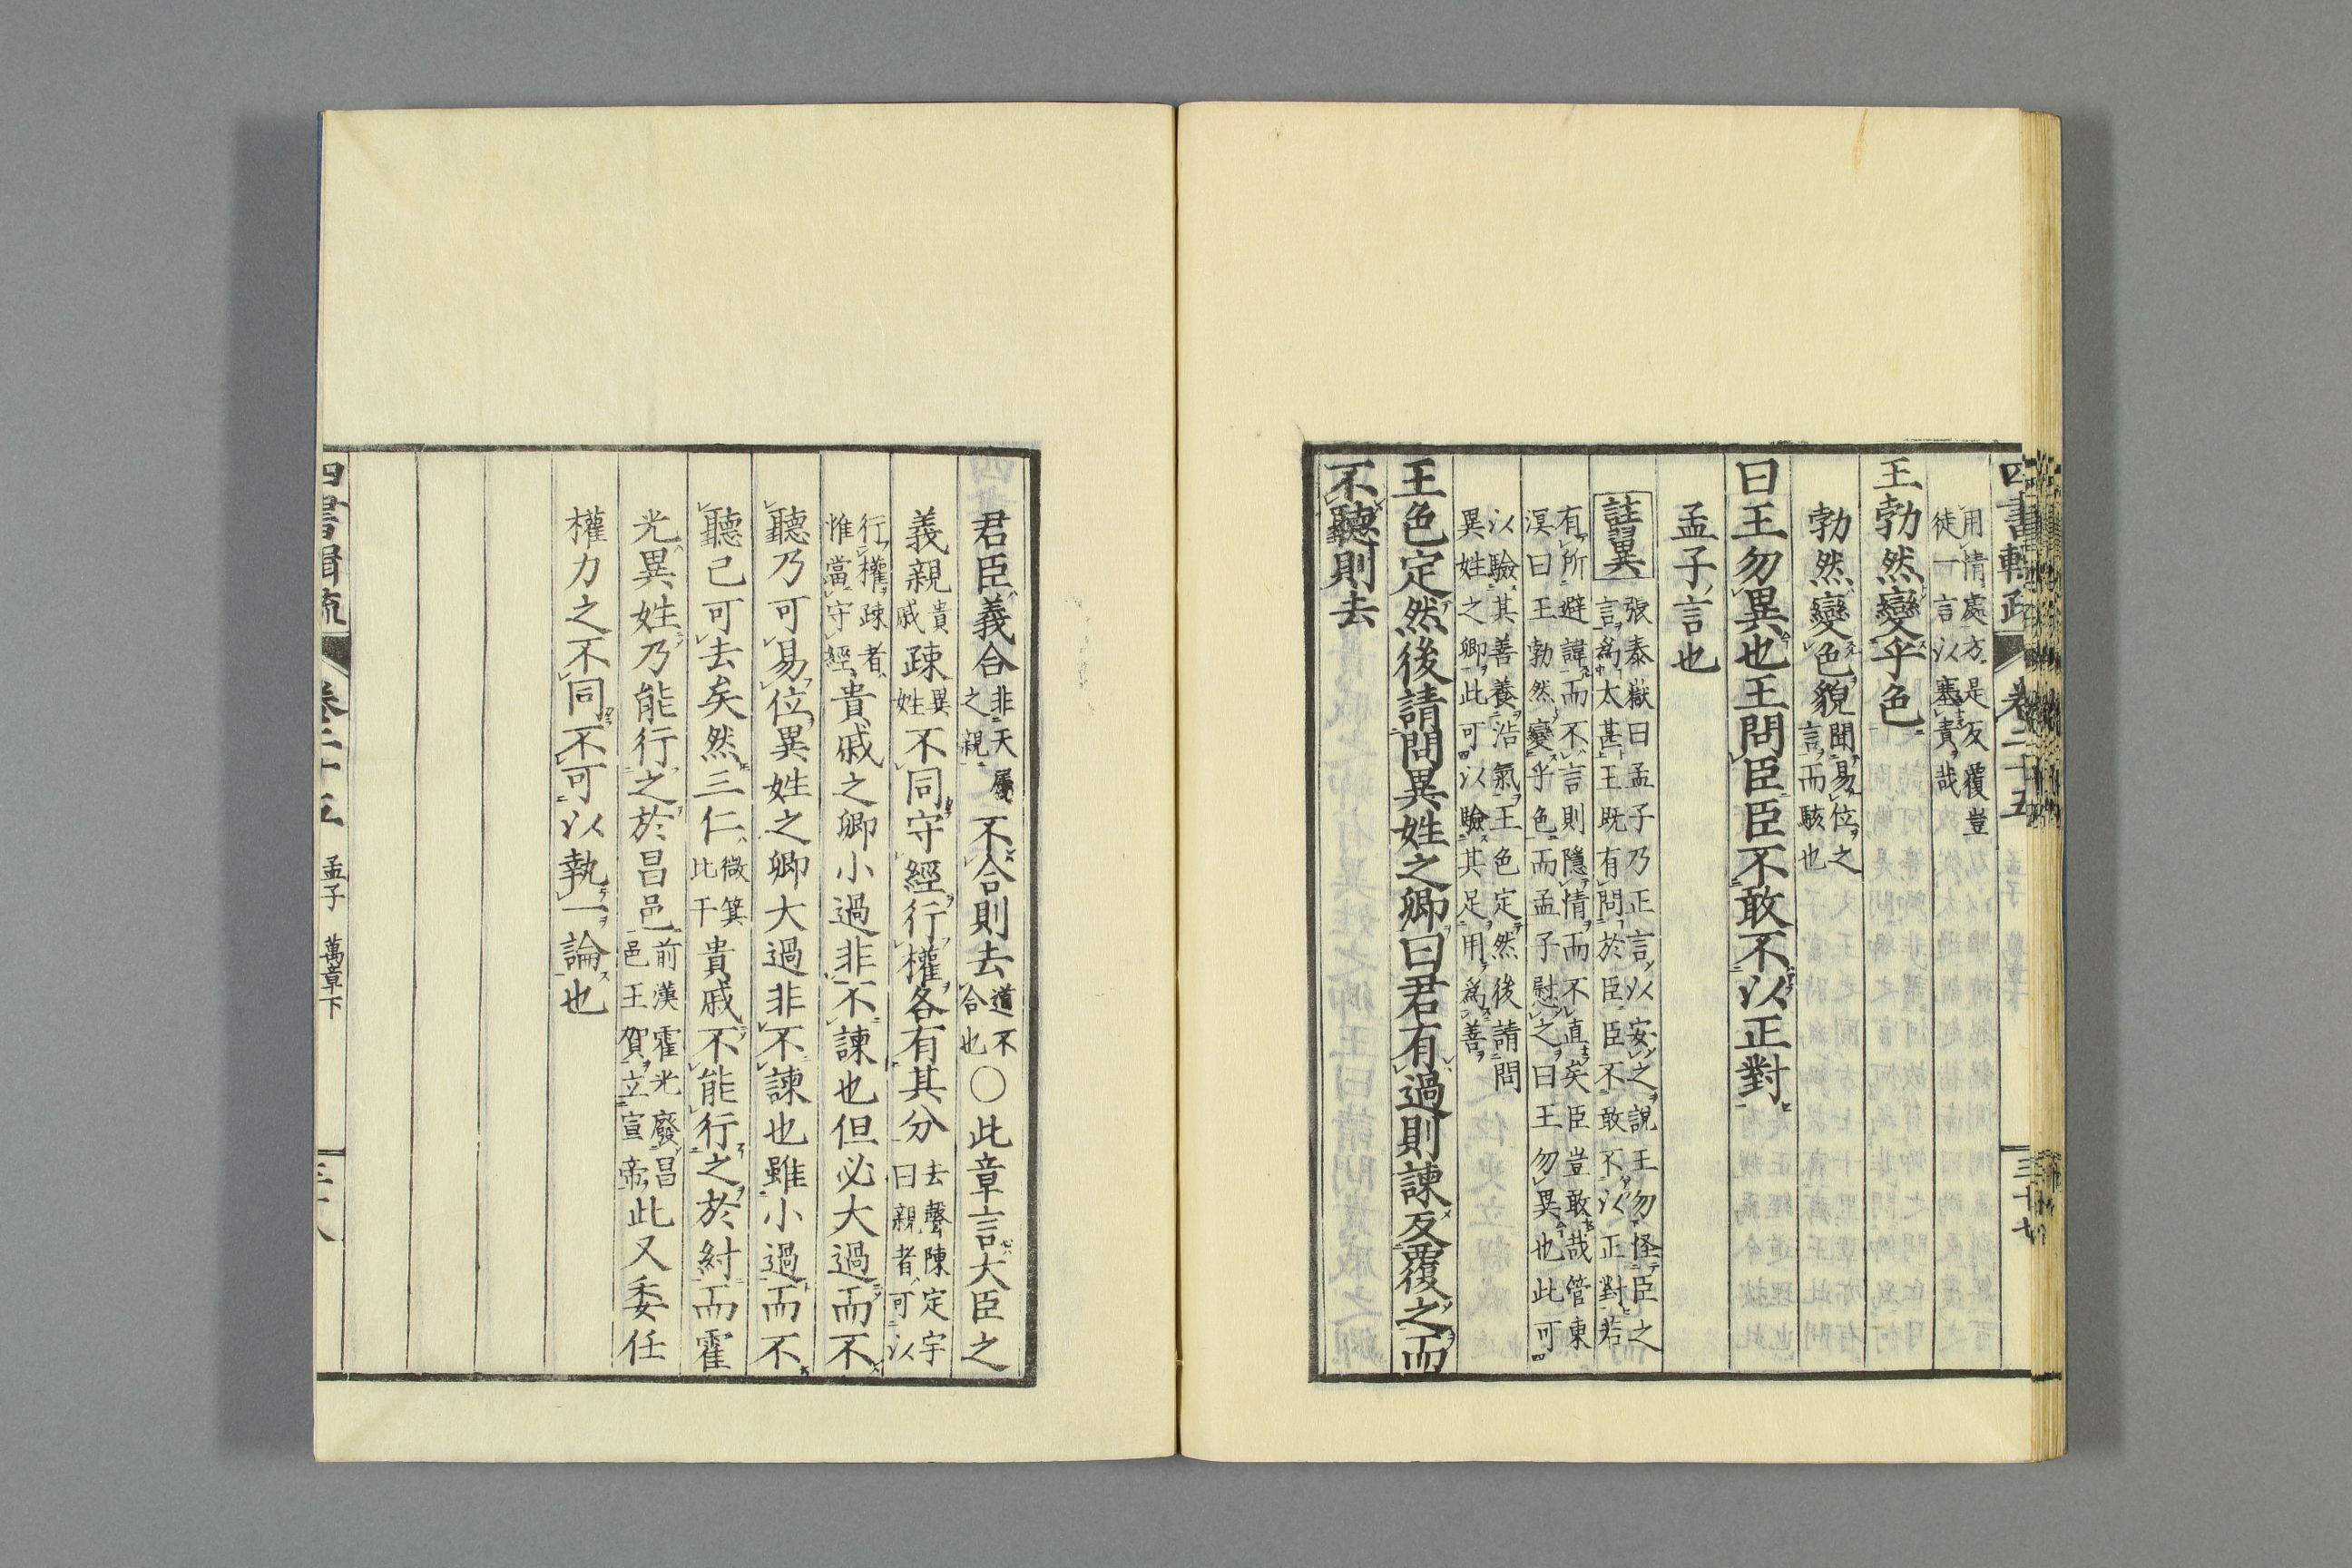 用情處方是反覆豈
徒一言以塞責哉
王勃然變乎色
勃然變色貌聞易位之
言而駭也
曰王勿異也王問臣臣不敢不以正對
孟子言也
註翼張泰嶽曰孟子乃正言以安之說王勿怪臣之
言爲太甚王既有問於臣臣不敢不以正對若
有所避諱而不言則隱情而不直矣臣豈敢哉管東
溟曰王勃然變乎色而孟子慰之曰王勿異也此可
以驗其善養浩氣王色定然後請問
異姓之卿此可以驗其足用爲善
王色定然後請問異姓之卿曰君有過則諫反覆之而
不聽則去
君臣義合非天屬之親不合則去道不合也○此章言大臣之
義親貴戚疎異姓不同守經行權各有其分去聲陳定宇曰親者可以
行權疎者惟當守經貴戚之卿小過非不諫也但必大過而不
聽乃可易位異姓之卿大過非不諫也雖小過而不
聽已可去矣然三仁微箕比干貴戚不能行之於紂而霍
光異姓乃能行之於昌邑前漢霍光廢昌邑王賀立宣帝此又委任
權力之不同不可以執一論也
卷二十五 孟子 萬章下